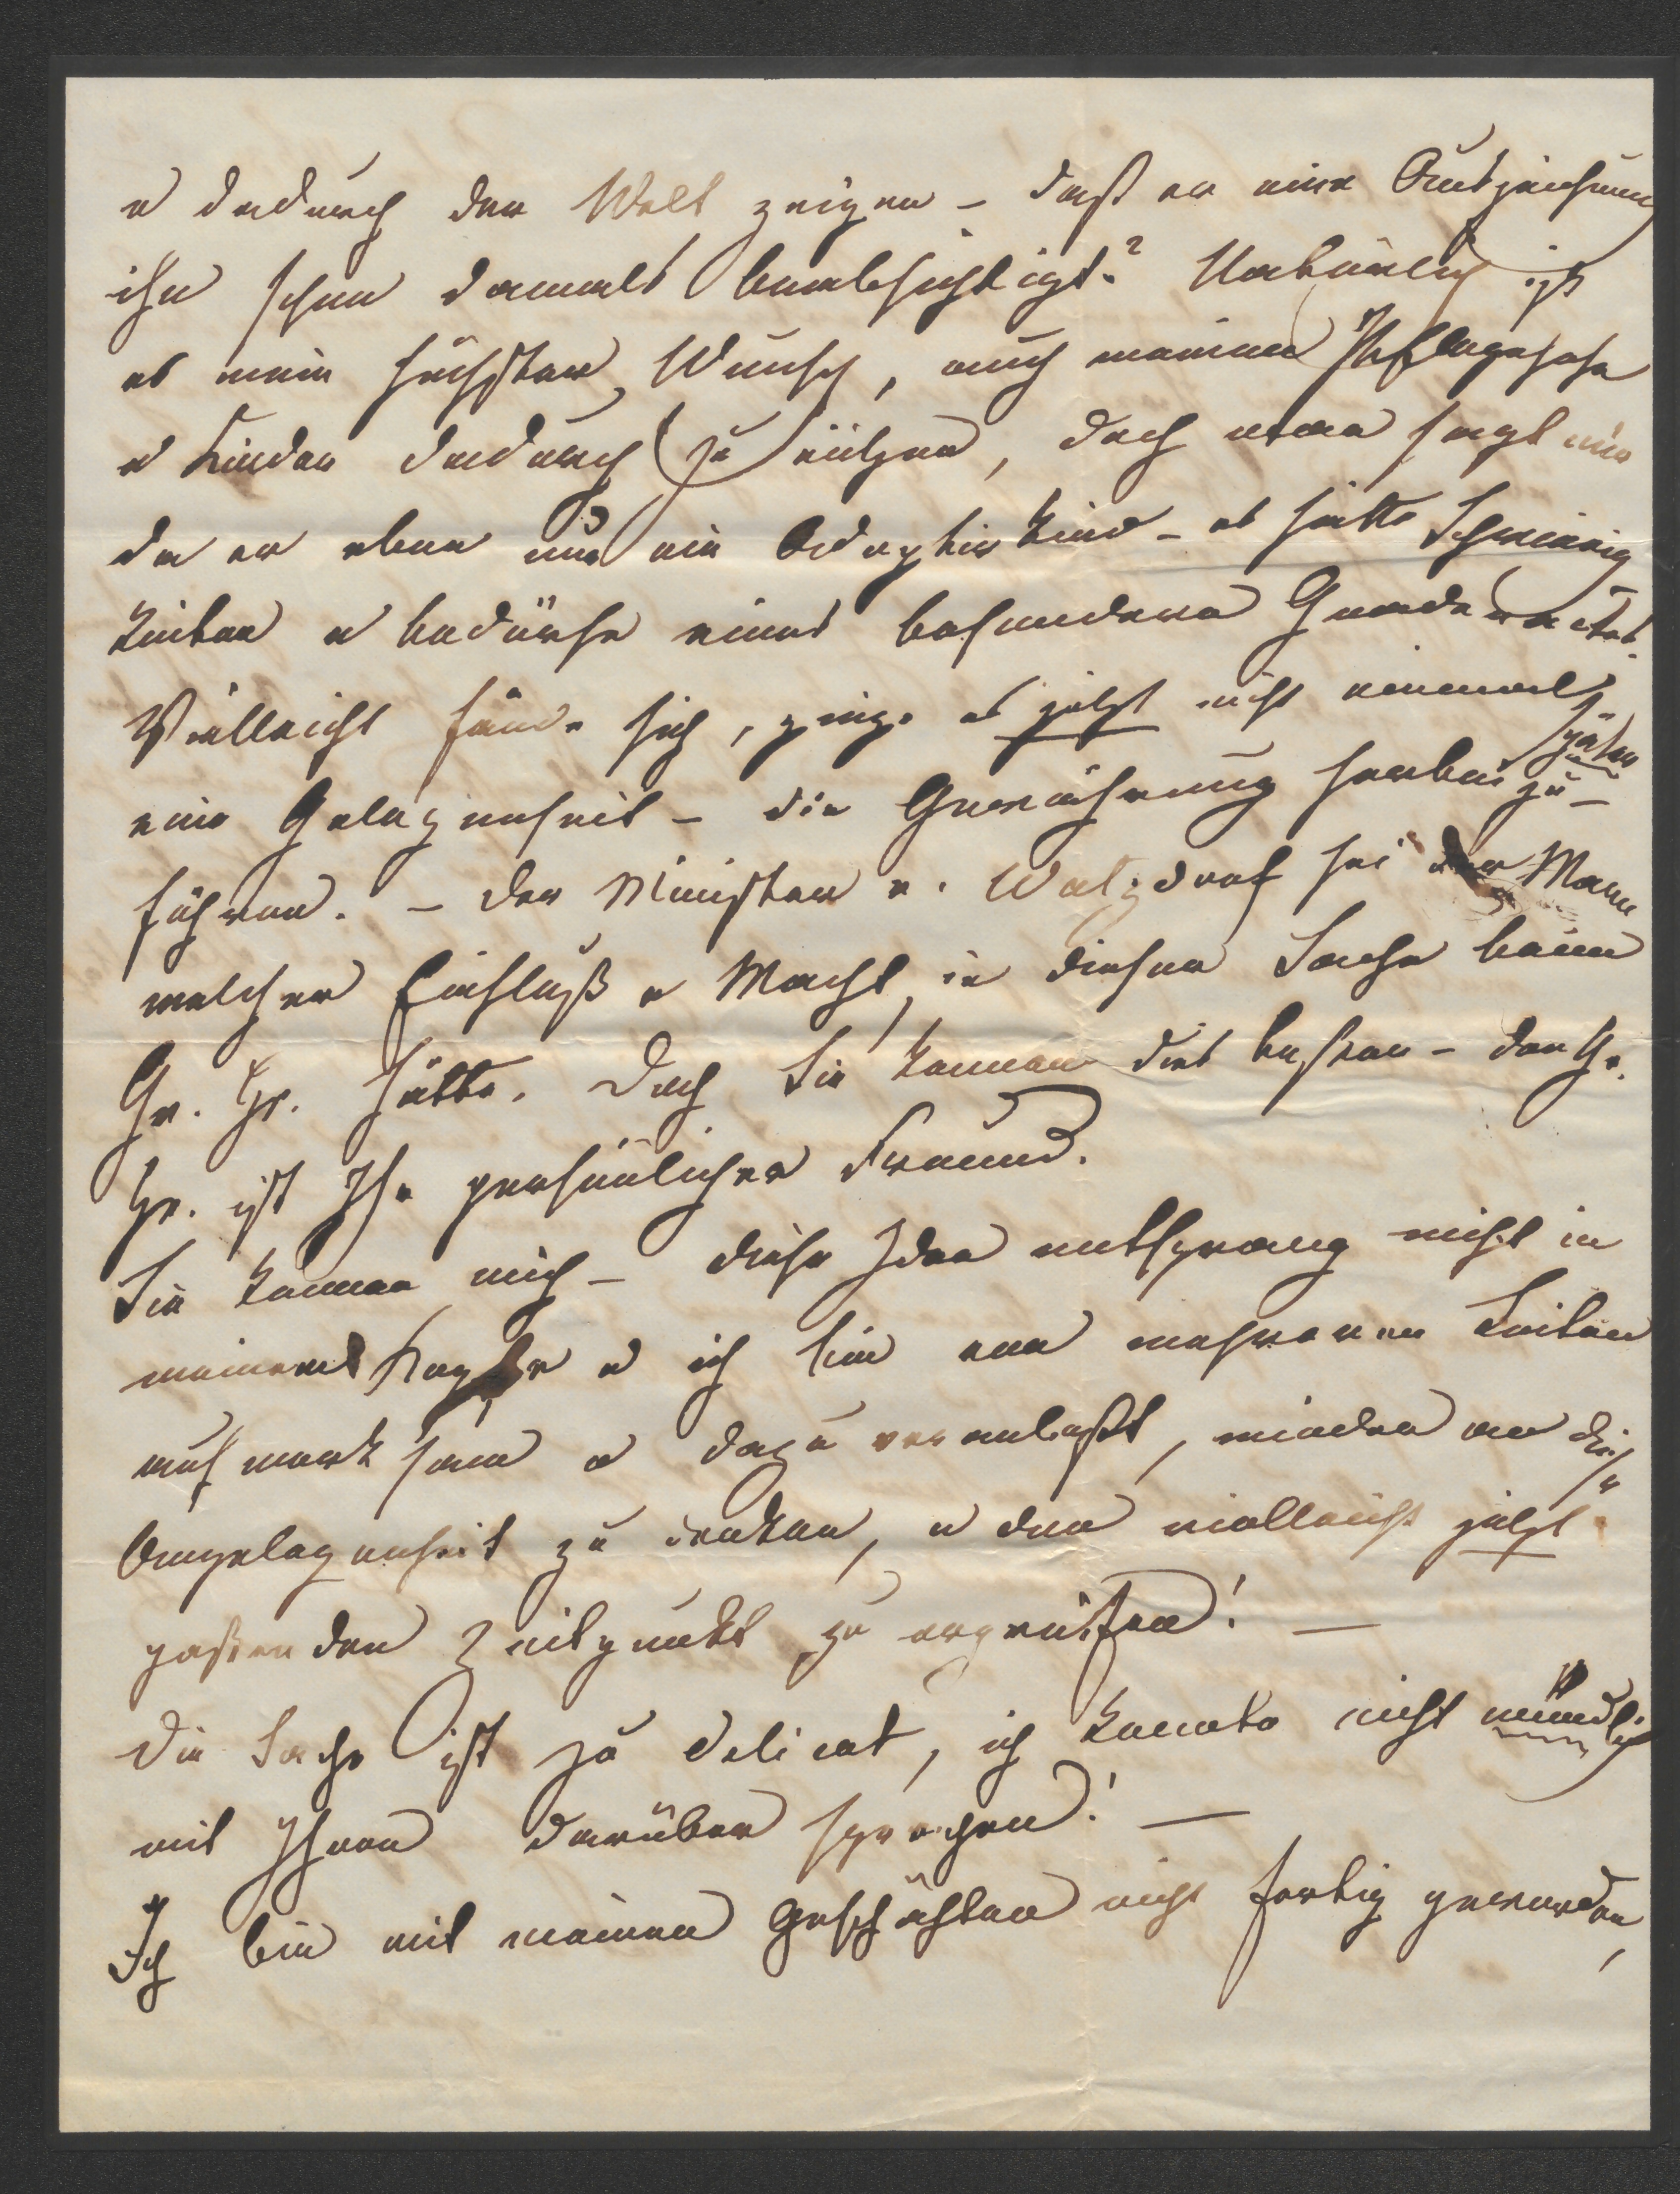 u dadurch der Welt zeigen – daß er eine Auszeichnung
ihn schon damals beabsichtigt? Natürlich ist
es mein höchster Wunsch, auch meinem Pflegesohn
u Kinder dadurch zu nützen, doch man sagt mir
da er eben nur ein Adoptivkind – es hätte Schwierig
keiten u bedürfe eines besondern Gnadenactes.
Vielleicht fände sich, ginge es jetzt nicht einmal später
eine Gelegenheit – die Gewährung herbei zu–
führen. – Der Minister v. Watzdorf sei der Mann
welcher Einfluß u Macht, in dieser Sache beim
Gr. Hr. hätte. Doch Sie kennen dies besser – der Gr.
Hr. ist Ihr persönlicher Freund.
Sie kennen mich – diese Idee entsprang nicht in
meinem Kopfe u ich bin von mehreren Seiten
aufmerksam u dazu veranlaßt, wieder an diese
Angelegenheit zu denken, u den vielleicht jetzt
passenden Zeitpunkt zu ergreifen! —
Die Sache ist zu delicat, ich konnte nicht mündlich
mit Ihnen darüber sprechen! —
Ich bin mit meinen Geschäften nicht fertig geworden,